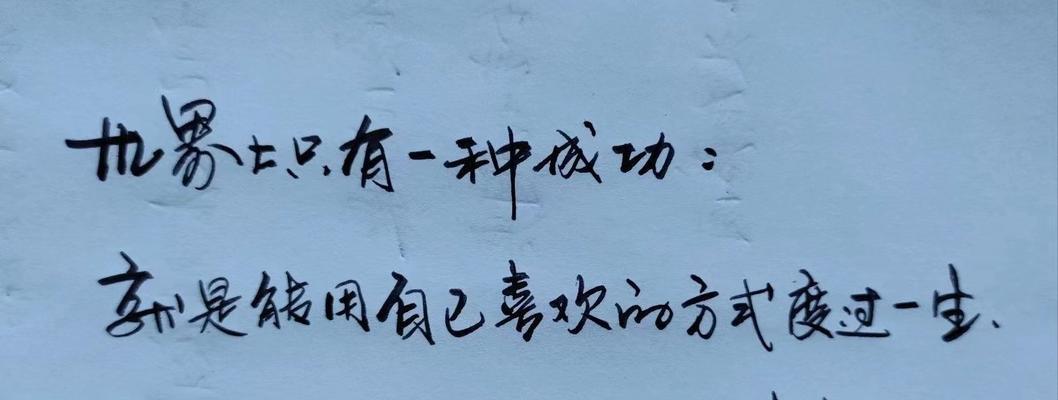 世界上只有一种成功：
就是能用自己喜欢的方式度过一生.